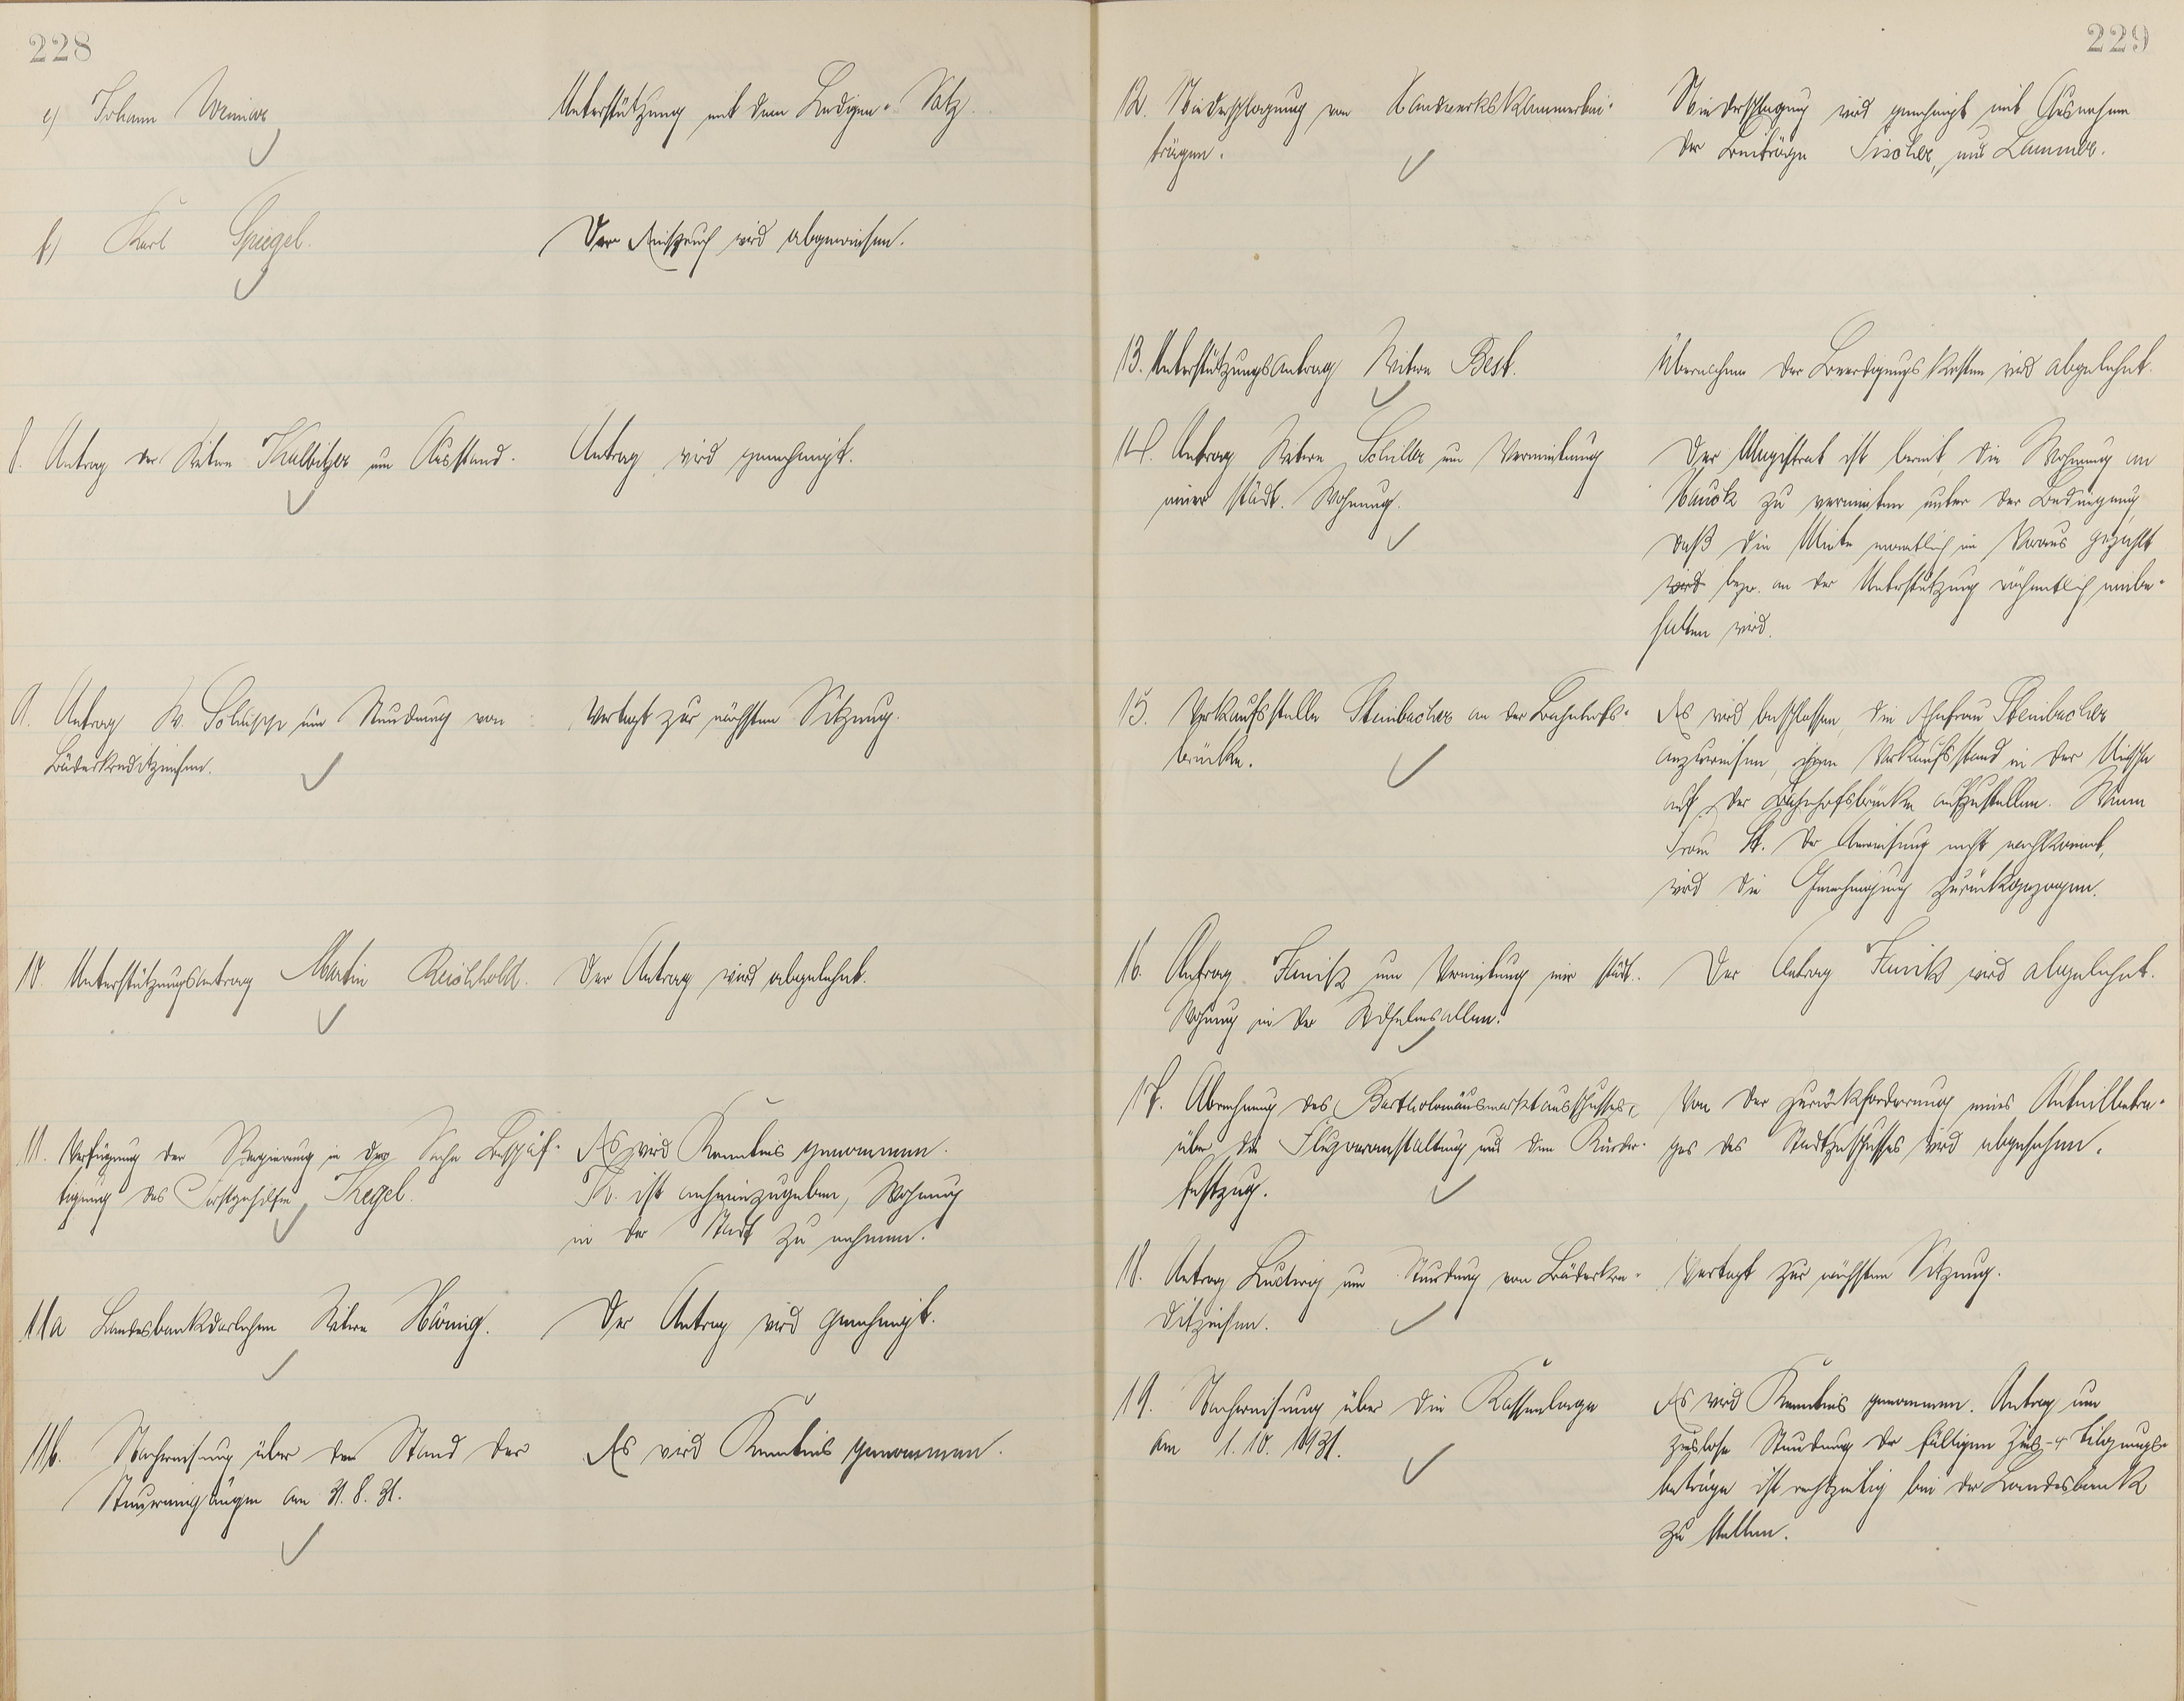 228
e) Johann
Unterstützung mit dem Ledigen-Satz
f) Karl Spiegel.
Der Einspruch wird abgewiesen.
8. Antrag der Witwe Kulbitzer um Ausstand.
Antrag wird genehmigt.
9. Antrag W. Schlipp um Stundung von
Bäderkreditzinsen.
Vertagt zur nächsten Sitzung.
10. Unterstützungsantrag Martin Reichhold.
Der Antrag wird abgelehnt.
11. Verfügung der Regierung in der Sache Beschäf-
tigung des Forstgehilfen Kregel.
Es wird Kenntnis genommen.
K. ist anheimzugeben, Wohnung
in der Stadt zu nehmen.
11a Landesbankdarlehen Witwe König.
Der Antrag wird genehmigt.
11b. Nachweisung über den Stand der
Steuereingänge am 31. 8. 31.
Es wird Kenntnis genommen.
229
12. Niederschlagung von Handwerkskammerbei-
trägen.
Niederschlagung wird genehmigt mit Ausnahme
der Beiträge Fischer, und Lammer.
13. Unterstützungsantrag Witwe Best.
Übernahme der Beerdigungskosten wird abgelehnt.
14. Antrag Witwe Schiller um Vermietung
einer städt. Wohnung.
Der Magistrat ist bereit die Wohnung an
Hauck zu vermieten unter der Bedingung
daß die Miete monatlich im Voraus gezahlt
wird bezw. an der Unterstützung wöchentlich einbe-
halten wird.
15. Verkaufsstelle Steinbacher an der Bahnhofs-
brücke.
Es wird beschlossen, die Ehefrau Steinbacher
anzuweisen, ihren Verkaufsstand in der Nische
auf der Bahnhofsbrücke aufzustellen. Wenn
Frau St. der Anweisung nicht nachkommt,
wird die Genehmigung zurückgezogen.
16. Antrag um Vermietung einer städt.
Wohnung in der Wilhelmsallee.
Der Antrag wird abgelehnt.
17. Abrechnung des Bartholomäusmarktausschusses,
über die Flugveranstaltung und den Kinder-
festzug.
Von der Zurückforderung eines Anteilbetra-
ges des Stadtzuschusses wird abgesehen.
18. Antrag Ludwig um Stundung von Bäderkre-
ditzinsen.
Vertagt zur nächsten Sitzung.
19. Nachweisung über die Kassenlage
am 1. 10. 1931.
Es wird Kenntnis genommen. Antrag um
zinslose Stundung der fälligen Zins- u. Tilgungs-
beträge ist rechtzeitig bei der Landesbank
zu stellen.